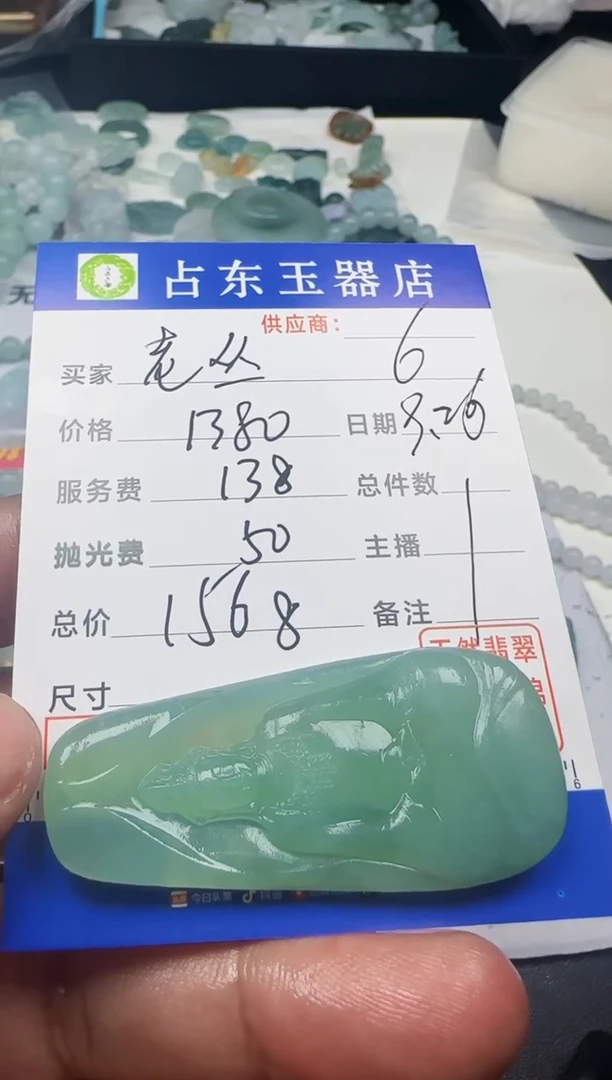 占东玉器店
供应商: 6
买家 老丛
价格 1380 日期 8.26
服务费 138 总件数 1
抛光费 50 主播
总价 1568 备注
尺寸
天然翡翠
今日头条